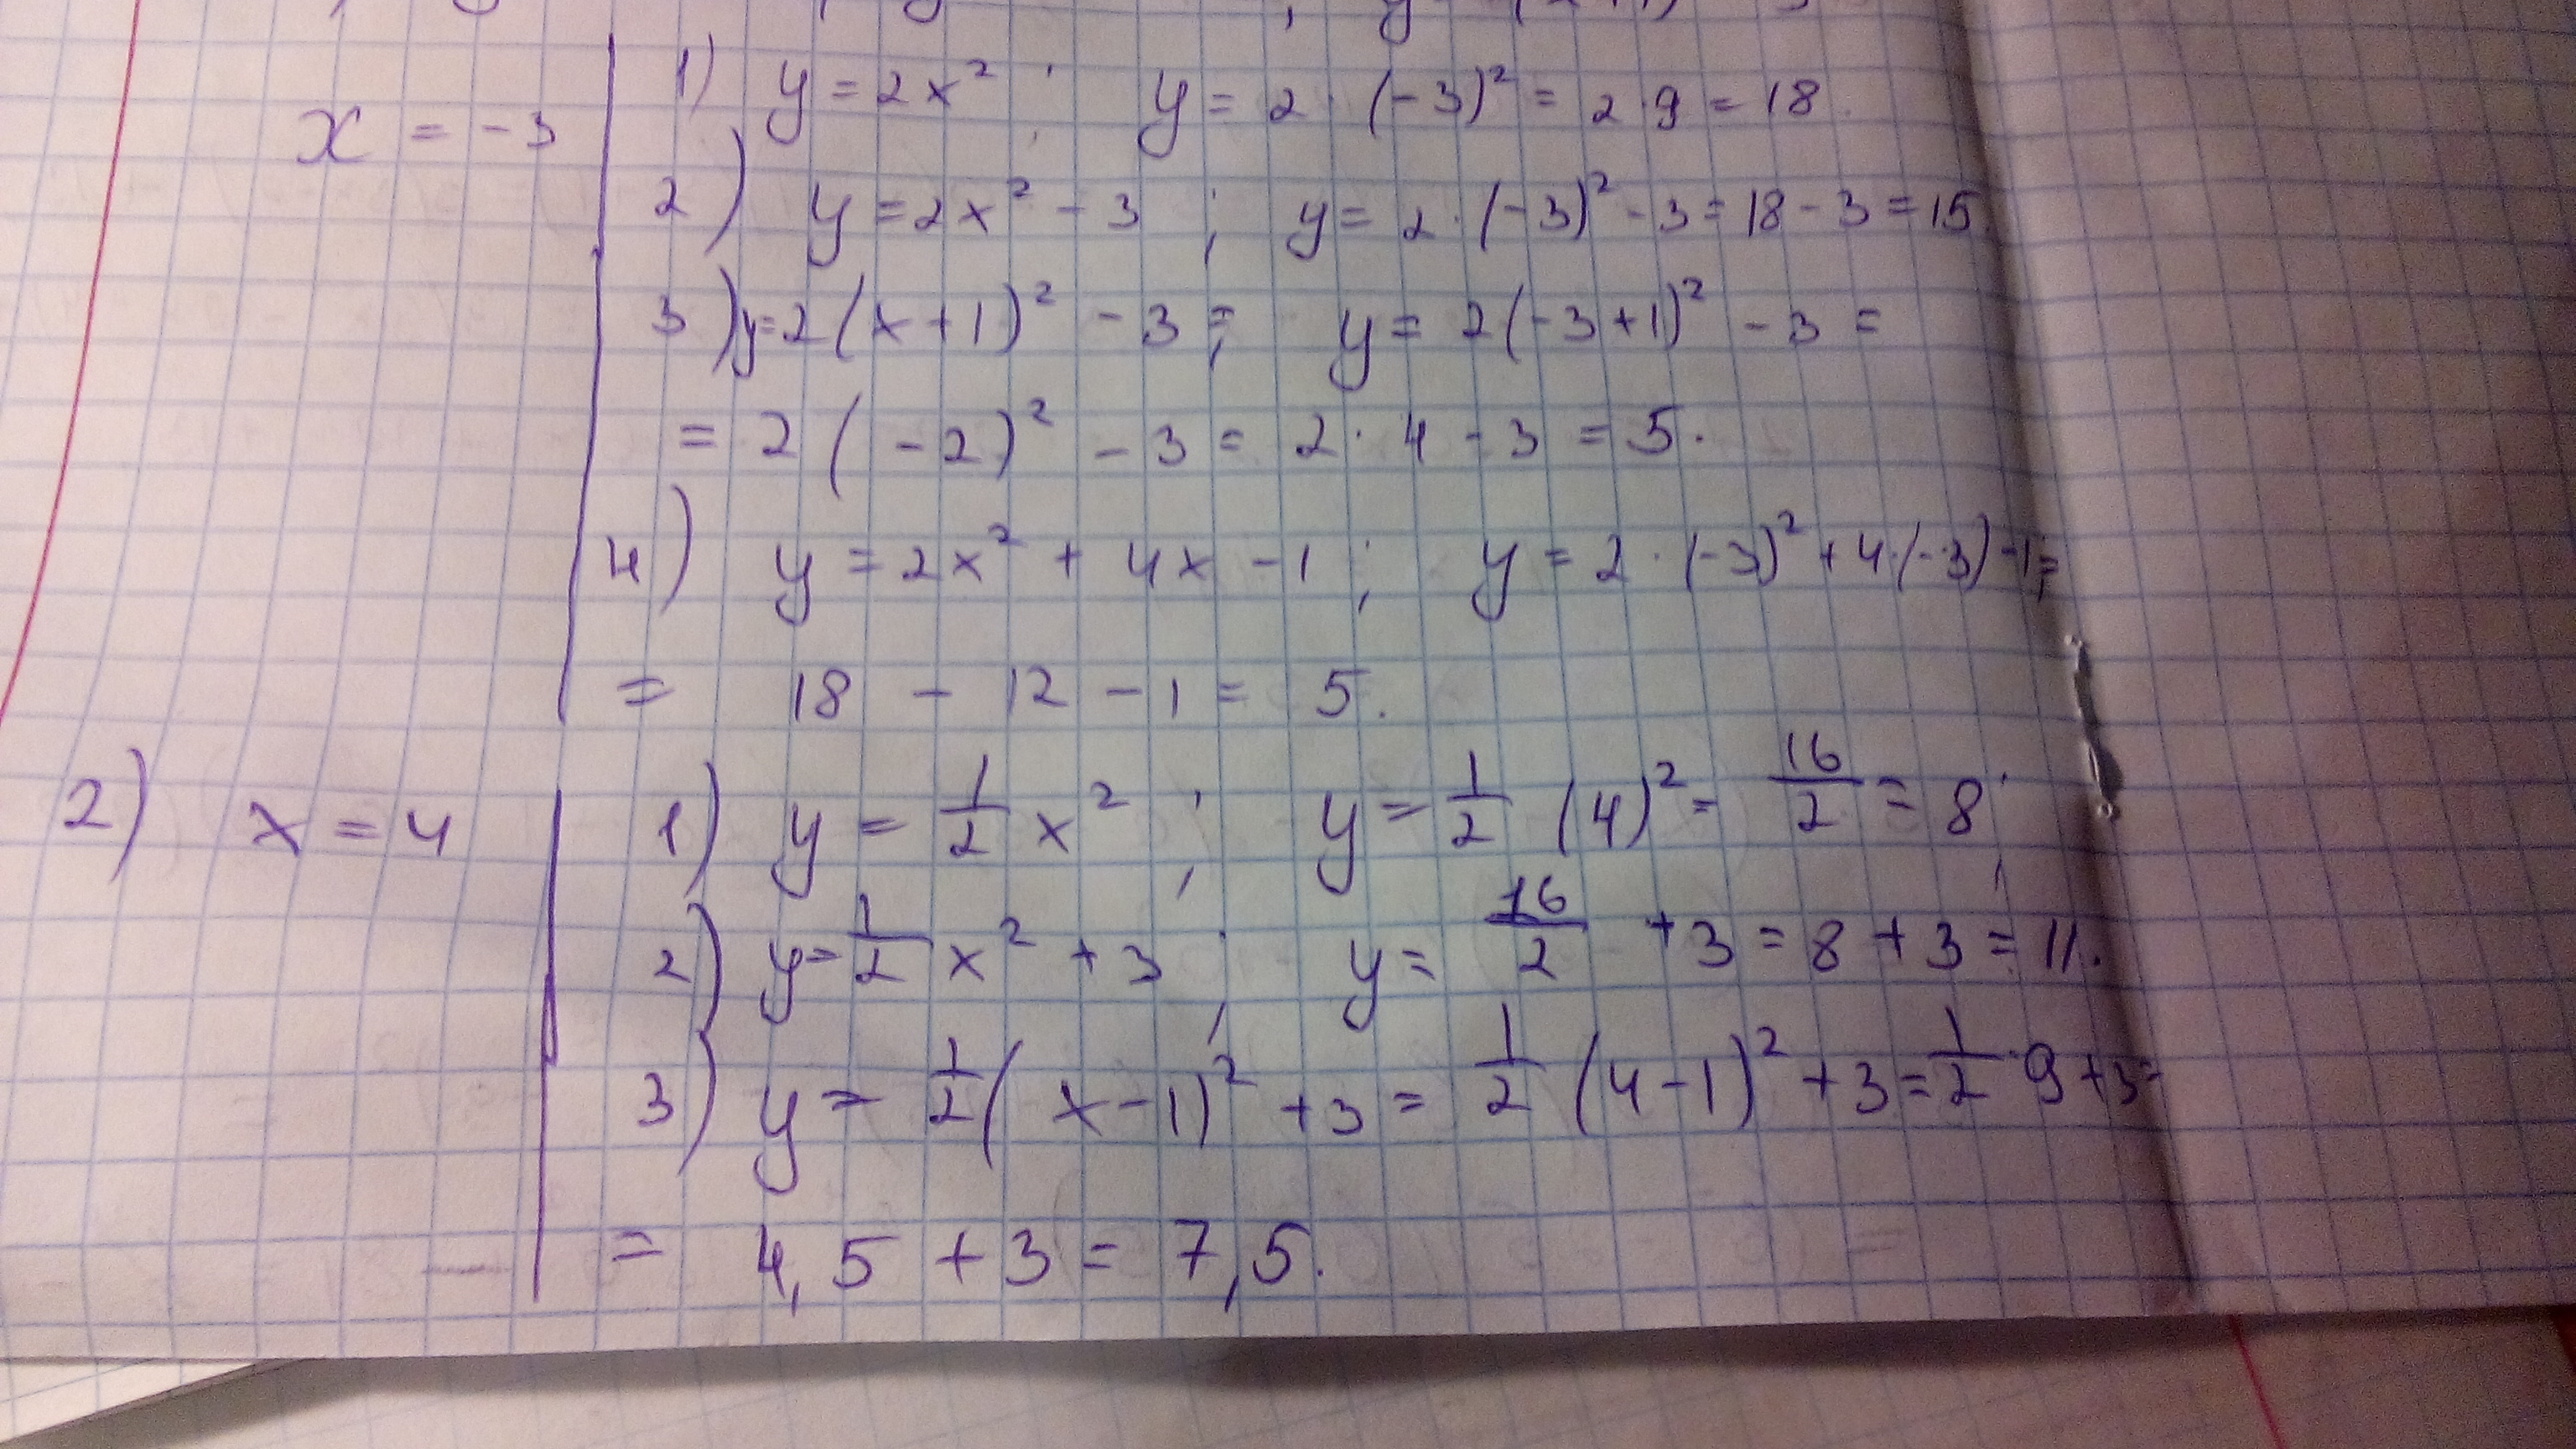 1) y = 2x² ; y = 2 · (-3)² = 2 · 9 = 18.
x = -3
2) y = 2x² - 3 ; y = 2 · (-3)² - 3 = 18 - 3 = 15.
3) y = 2(x+1)² - 3 ; y = 2(-3+1)² - 3 =
= 2(-2)² - 3 = 2 · 4 - 3 = 5.
4) y = 2x² + 4x - 1 ; y = 2 · (-3)² + 4 · (-3) - 1 =
= 18 - 12 - 1 = 5.
2) x = 4 1) y = 1/2 x² ; y = 1/2 (4)² = 16/2 = 8 ;
2) y = 1/2 x² + 3 ; y = 16/2 + 3 = 8 + 3 = 11.
3) y = 1/2 (x-1)² + 3 = 1/2 (4-1)² + 3 = 1/2 · 9 + 3 =
= 4,5 + 3 = 7,5.